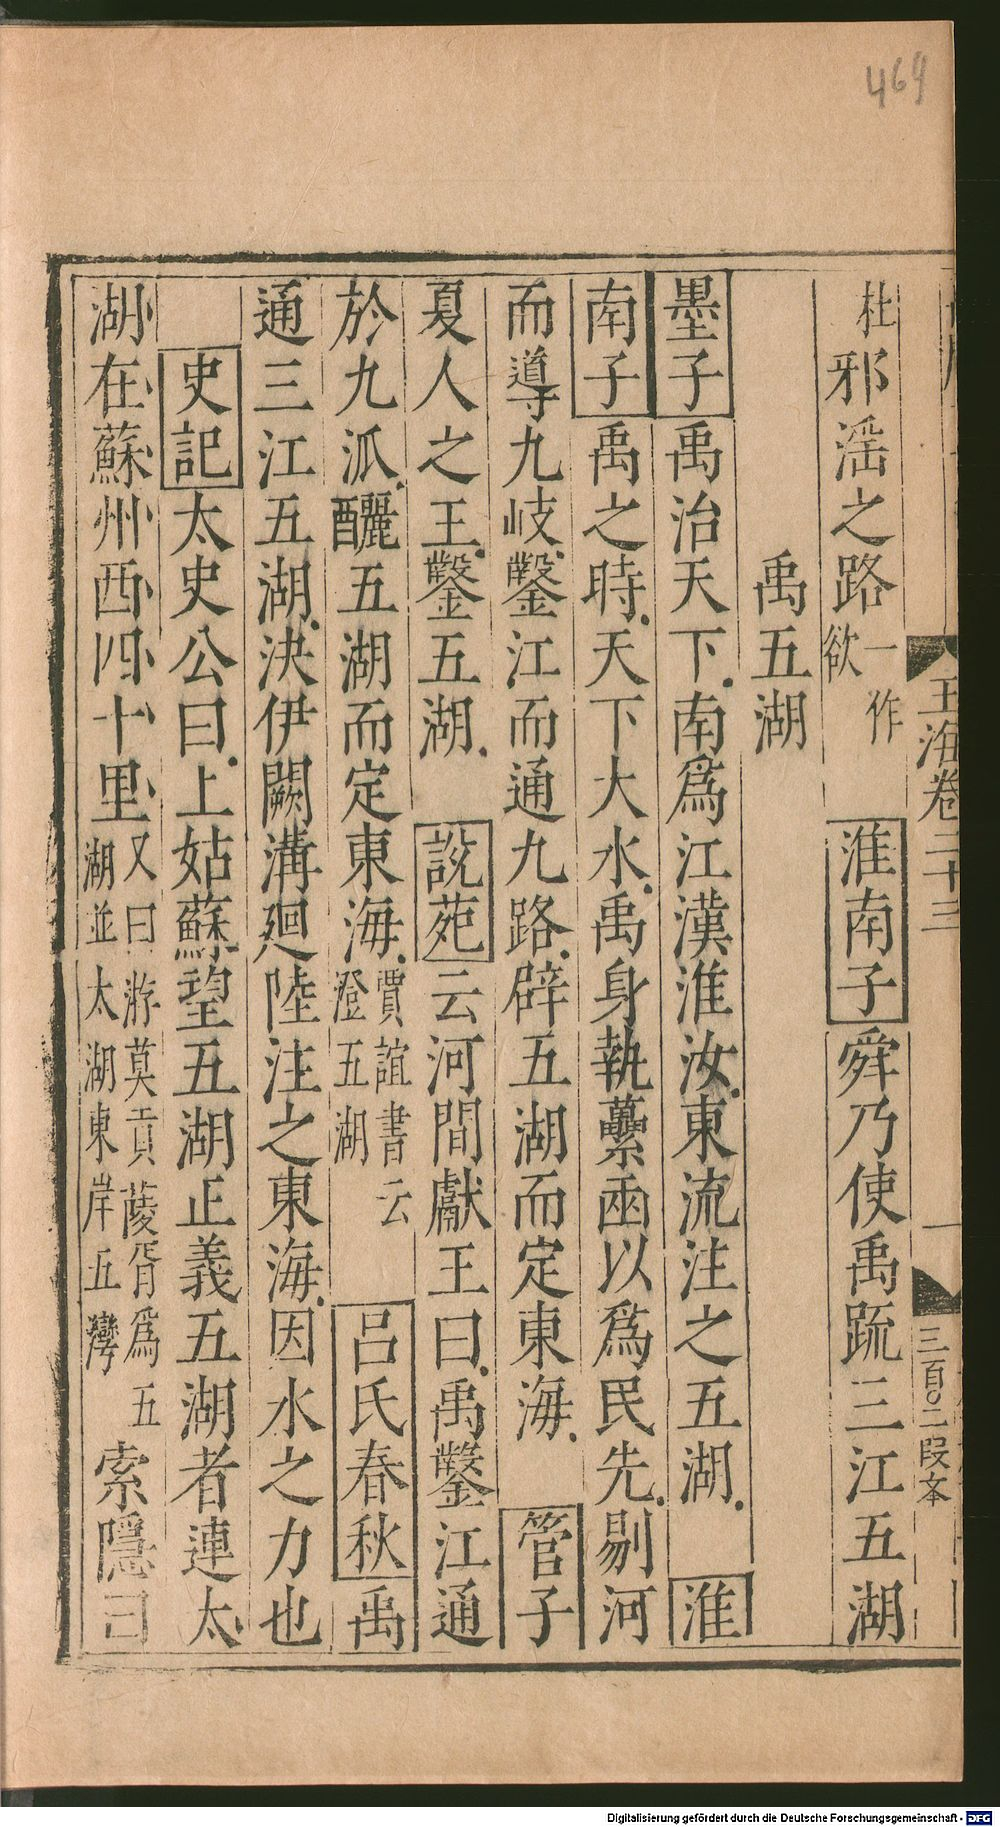 469
玉海卷二十三
一
三百〇二段文
杜邪淫之路一作欲 淮南子舜乃使禹疏三江五湖
禹五湖
墨子禹治天下南爲江漢淮汝東流注之五湖 淮
南子禹之時天下大水禹身執虆臿以爲民先剔河
而導九岐鑿江而通九路辟五湖而定東海 管子
夏人之王鑿五湖 說苑云河間獻王曰禹鑿江通
於九派釃五湖而定東海賈誼書云澄五湖 呂氏春秋禹
通三江五湖決伊闕溝廻陸注之東海因水之力也
史記太史公曰上姑蘇望五湖正義五湖者連太
湖在蘇州西四十里又曰游莫貢菱胥爲五湖並太湖東岸五灣索隱曰
Digitalisierung gefördert durch die Deutsche Forschungsgemeinschaft - DFG